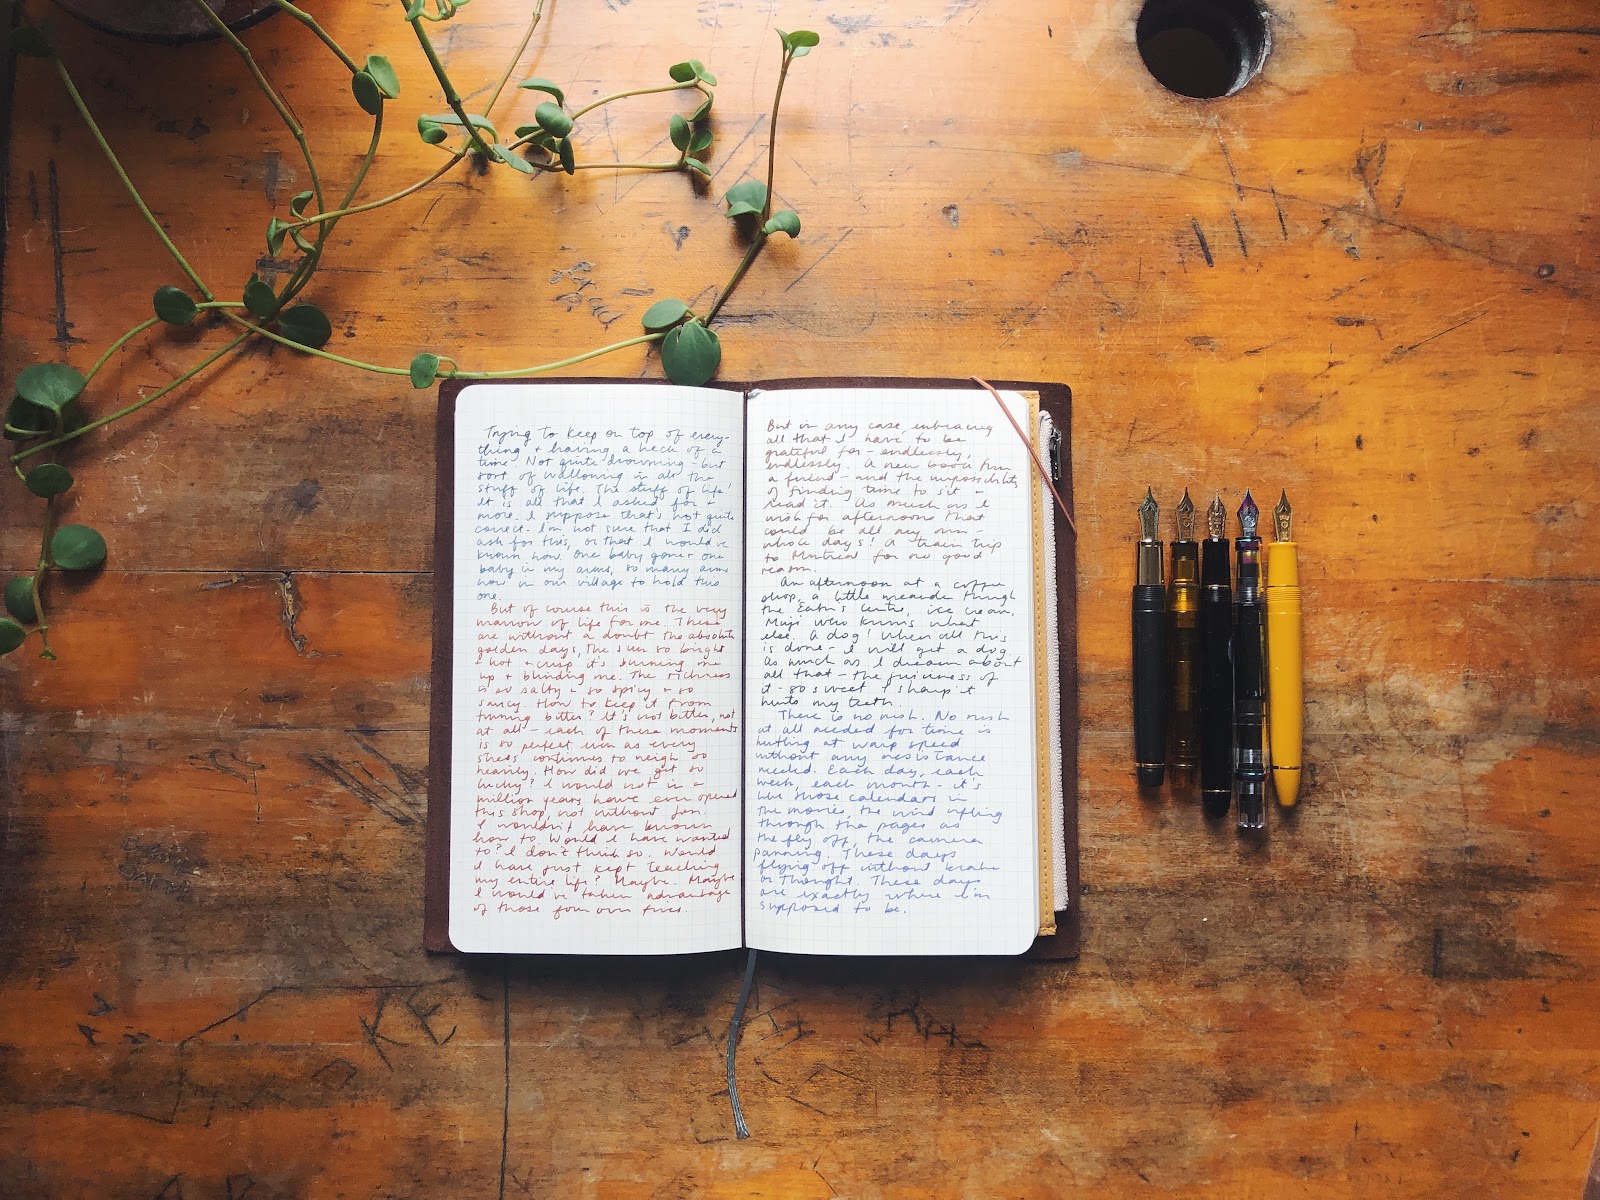 Trying to keep on top of every-
thing + having a heck of a
time. Not quite drowning - but
sort of wallowing in all the
stuff of life. The stuff of life!
It is all that I asked for +
more. I suppose that's not quite
correct - I'm not sure that I did
ask for this, or that I would've
known how. One baby gone + one
baby in my arms, so many arms
now in our village to hold this
one.
But of course this is the very
marrow of life for me. These
are without a doubt the absolute
golden days, the sun so bright
+ hot + crisp it's burning me
up + blinding me. The richness
is so salty + so spicy + so
saucy. How to keep it from
turning bitter? It's not bitter, not
at all - each of these moments
is so perfect even as every
stress continues to weigh so
heavily. How did we get so
lucky? I would not in a
million years have ever opened
this shop, not without Jon.
I wouldn't have known
how to. Would I have wanted
to? I don't think so. Would
I have just kept teaching
my entire life? Maybe. Maybe
I would've taken advantage
of those four over fives.
But in any case, embracing
all that I have to be
grateful for - endlessly,
endlessly. A new book from
a friend - and the impossibility
of finding time to sit +
read it. As much as I
wish for afternoons that
could be all my own
whole days! A train trip
to Montreal for no good
reason.
An afternoon at a coffee
shop, a little meander through
the Eaton's Centre, ice cream,
Muji who knows what
else. A dog! When all this
is done - I will get a dog.
As much as I dream about
all that - the juiciness of
it - so sweet + sharp it
hurts my teeth.
There is no rush. No rush
at all needed for time is
hurtling at warp speed
without any resistance
needed. Each day, each
week, each month - it's
like those calendars in
the movies, the wind rifling
through the pages as
they fly off, the camera
panning. These days
flying off without brake
or thought. These days
are exactly where I'm
supposed to be.
KE